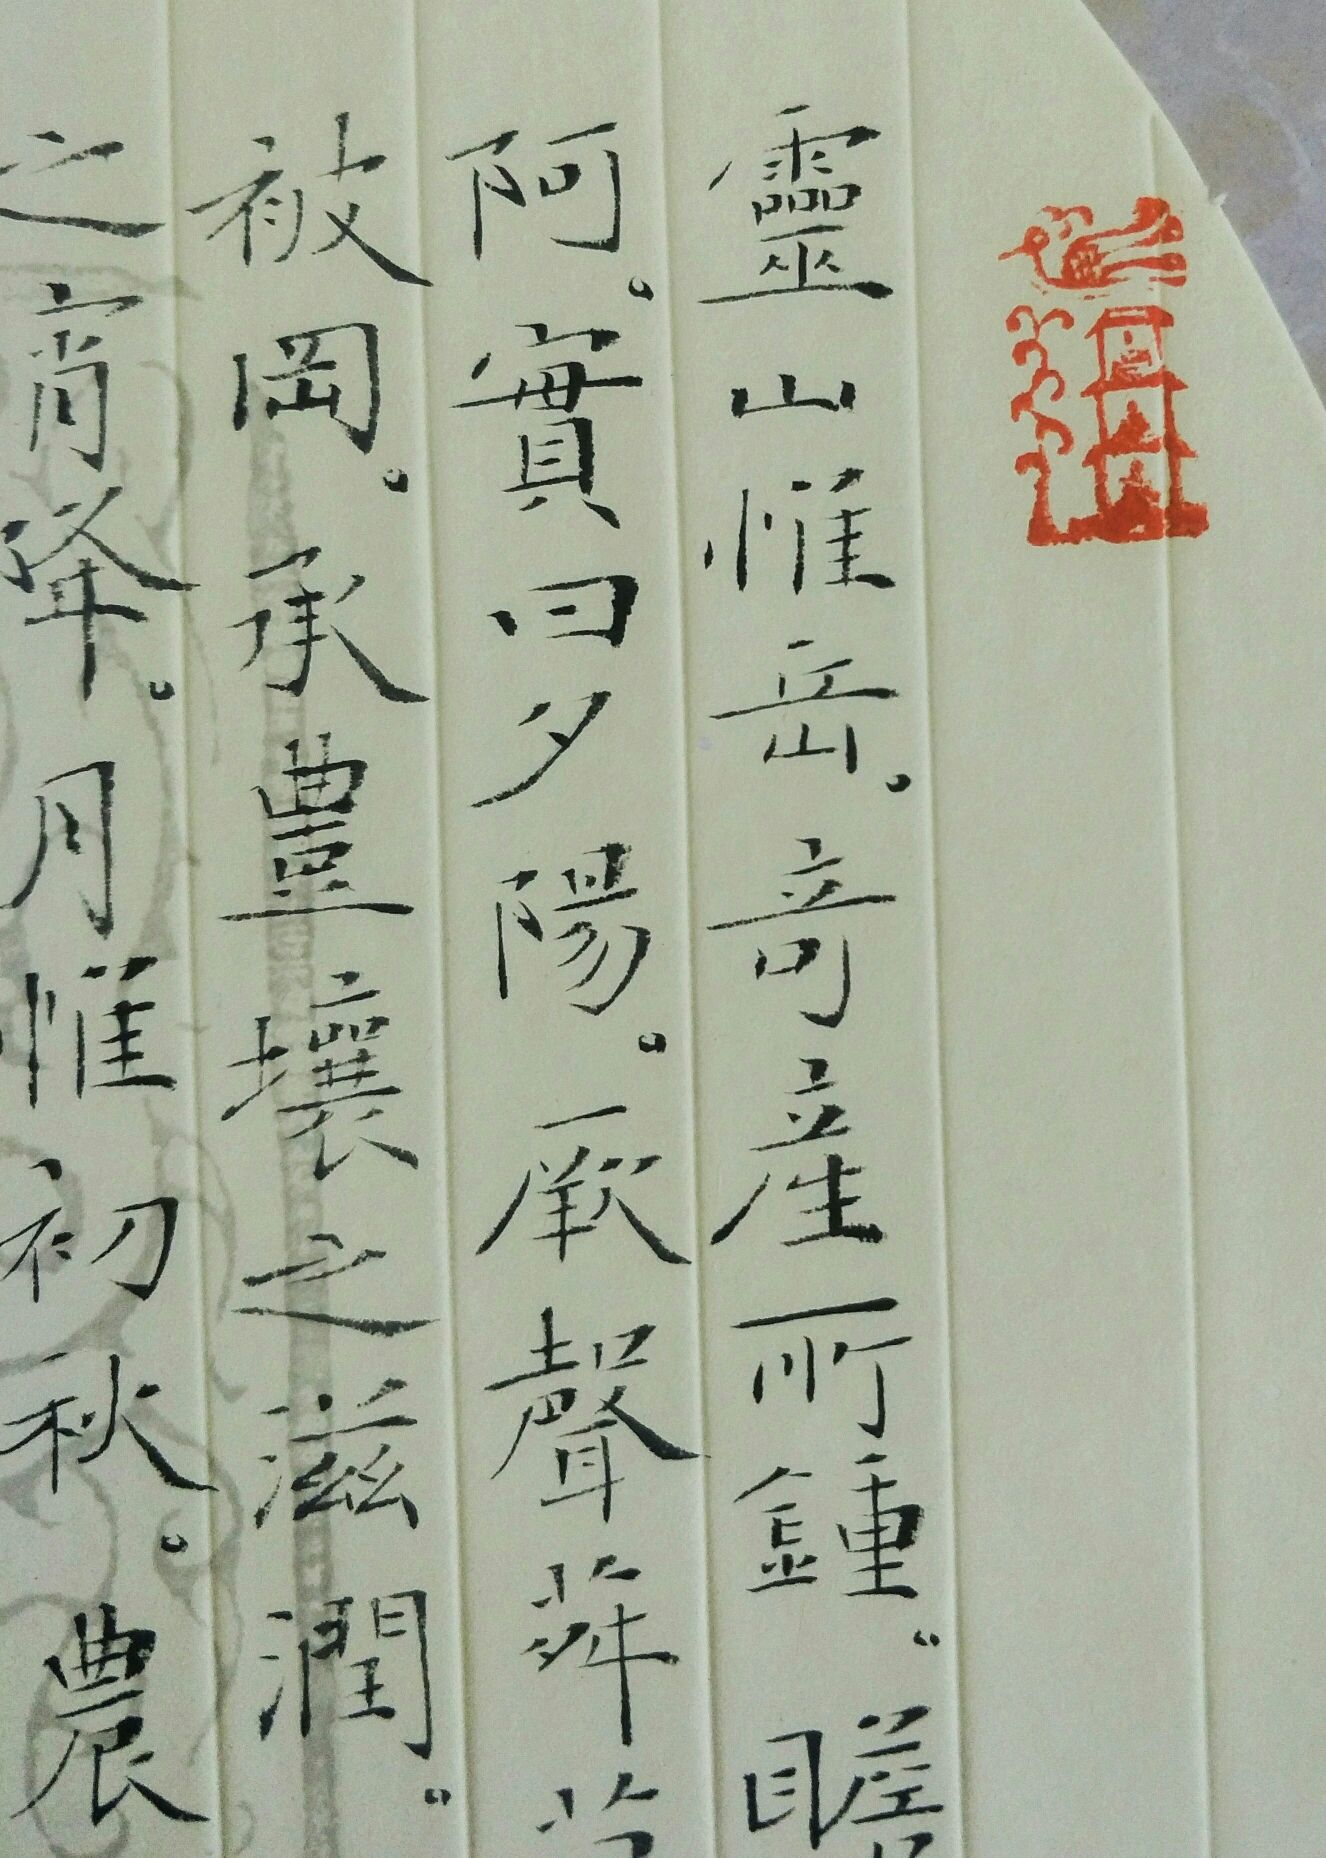 靈山惟岳。竒產所鍾。瞻
阿。實曰夕陽。厥聲荈
被岡。承豊壤之滋潤。
之宵降。月惟初秋。農